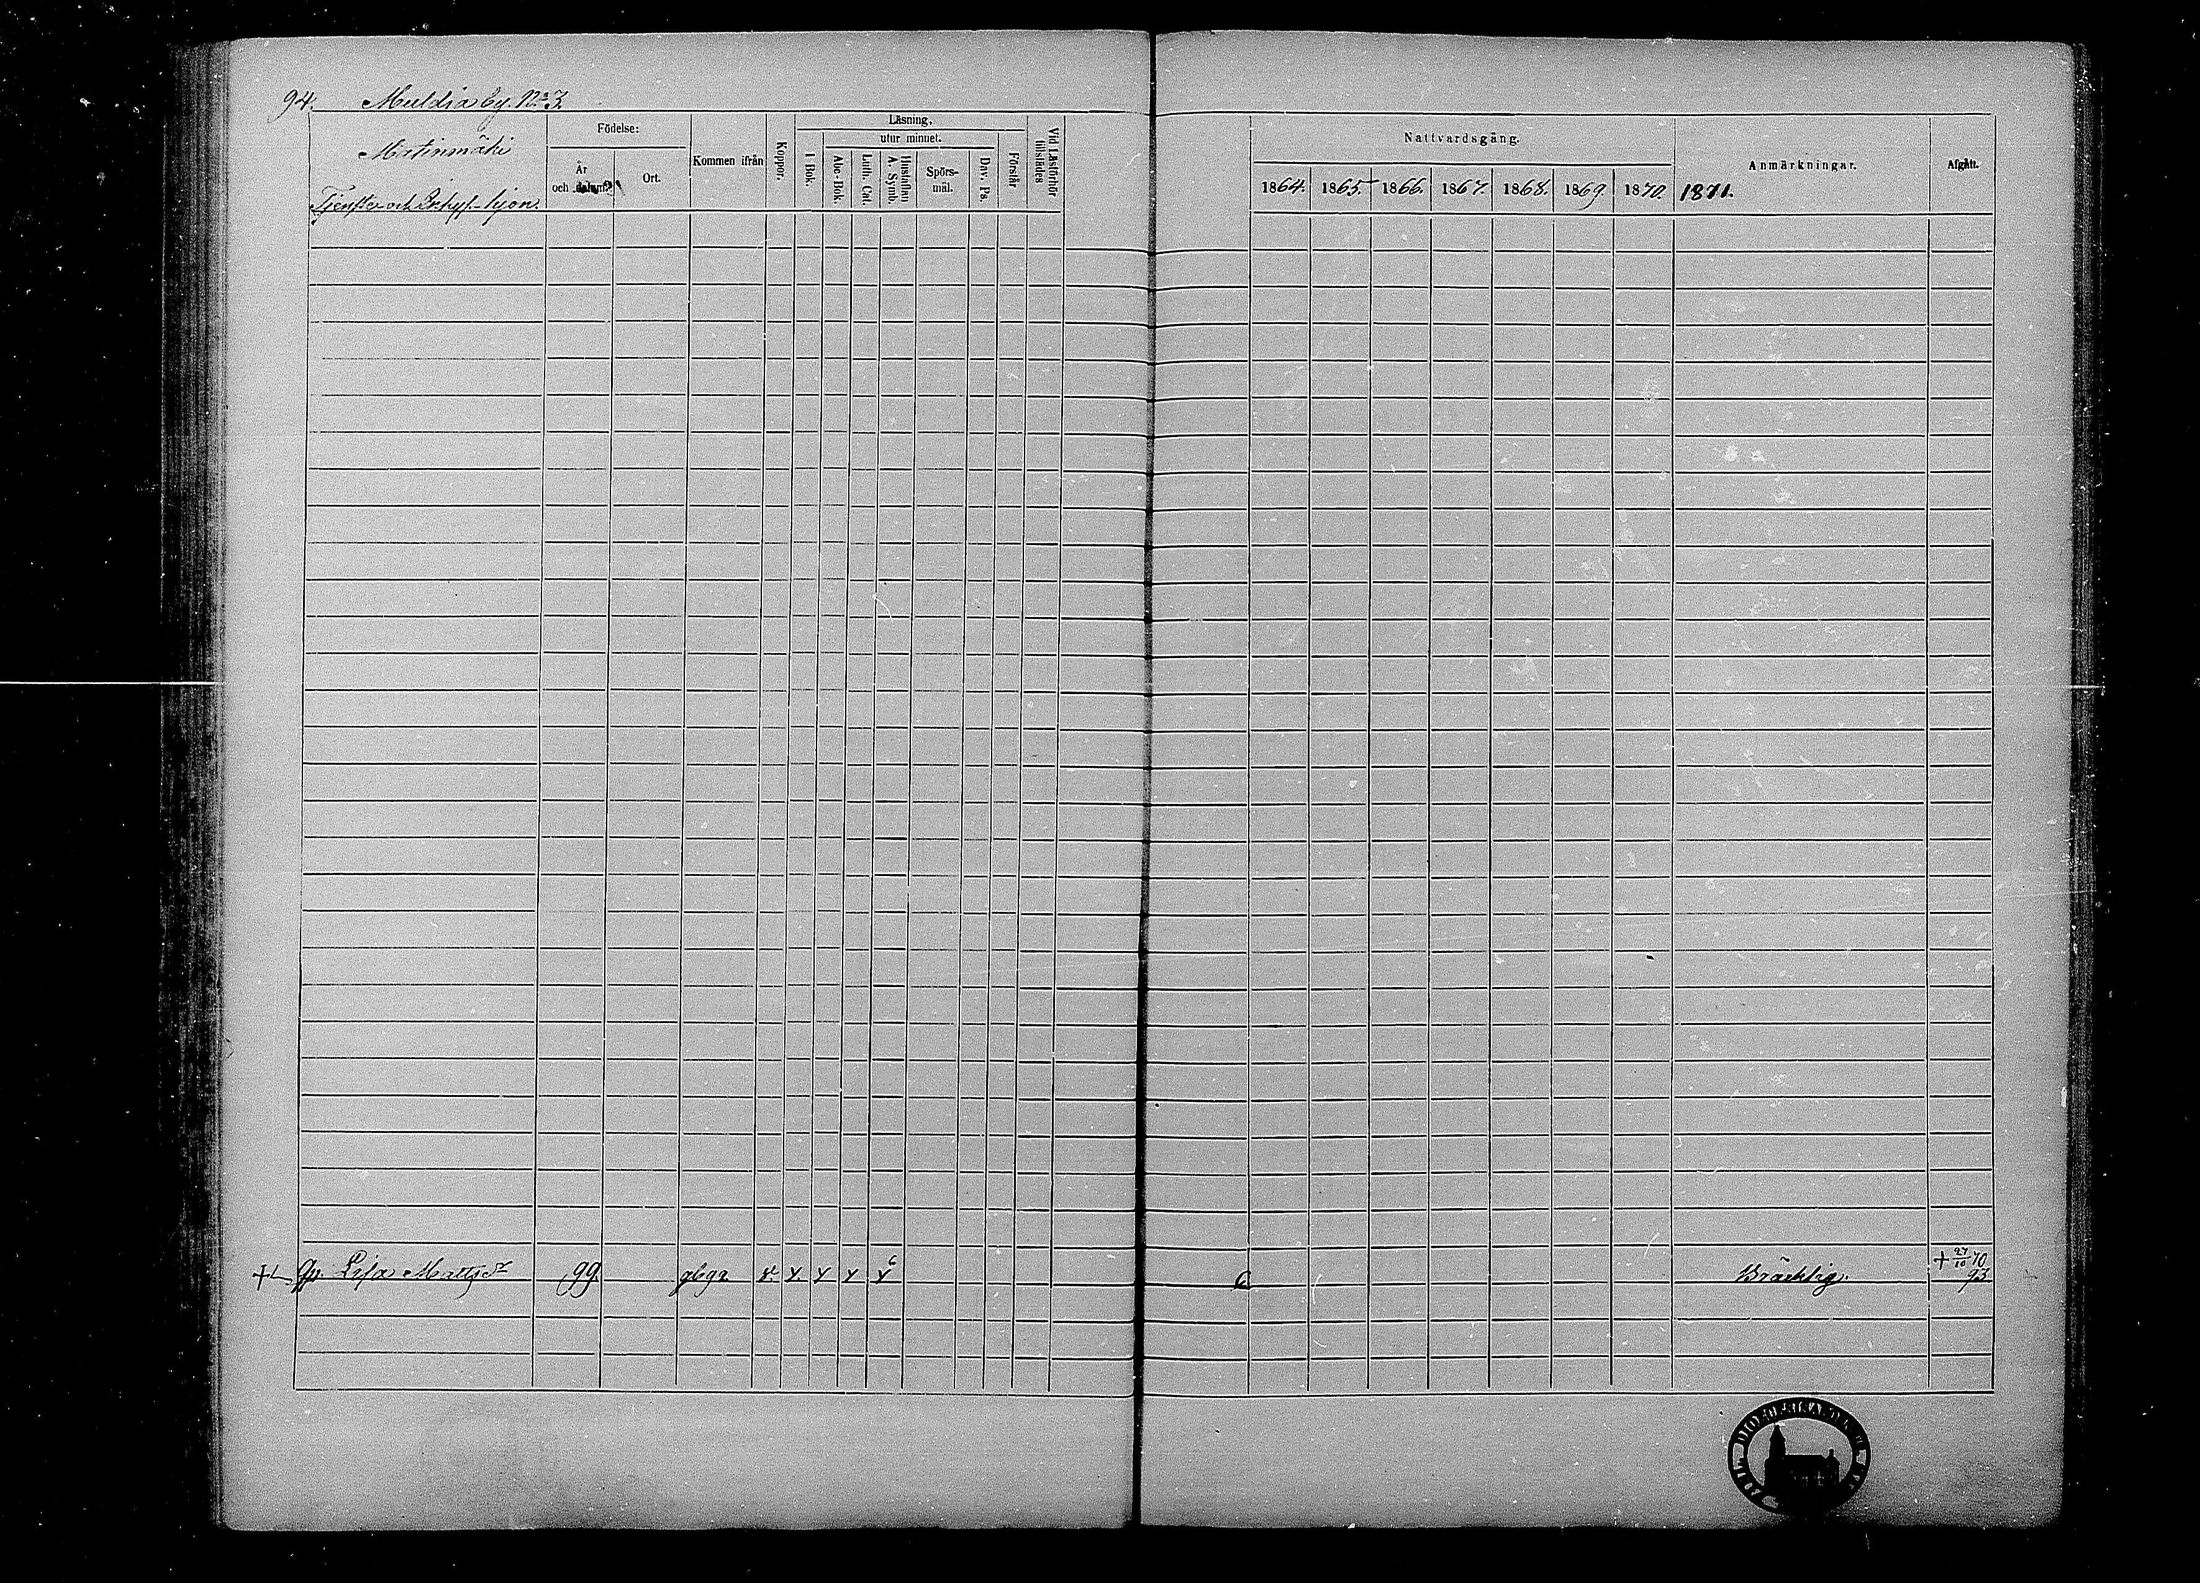 94. Muldia by. No 3.
Matinmäki
Tjenste och Inhys-hjon.
Födelse:
År och datum.
Ort.
Kommen ifrån
Koppor.
Läsning,
I Bok.
utur minnet.
Abc-Bok.
Luth. Cat.
Hustaflan A. Symb.
Spörs-mål.
Dav. Ps.
Förstår
Vid Läsförhör tillstädes
Nattvardsgång.
1864. 1865. 1866. 1867. 1868. 1869. 1870. 1871.
Anmärkningar.
Afgått.
Lisa Mattsdr 99. Bräcklig. + 27/10 70
93